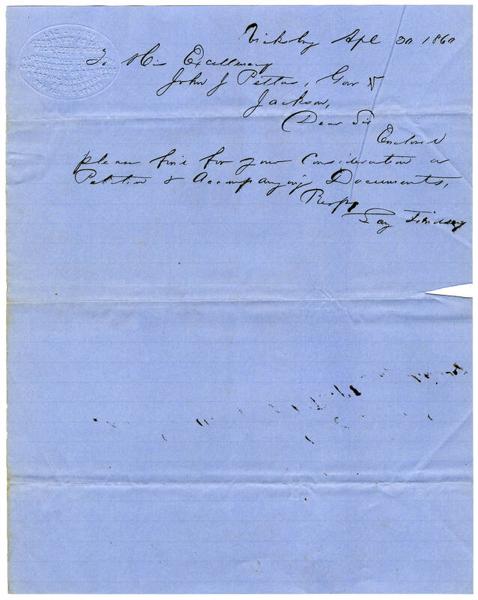 Vicksburg Apl 30 1860
To His Excellency
John J Pettus, Gov &
Jackson,
Dear Sir
Enclosed
please find for your Consideration a
Petition & Accompanying Documents,
Respy